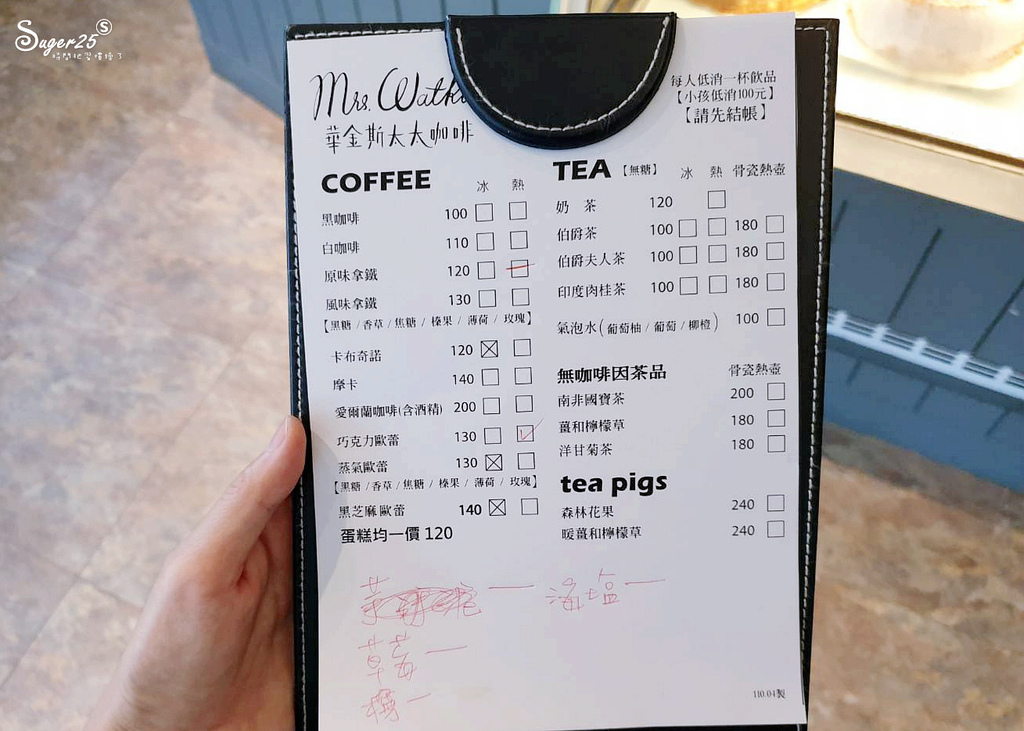 Suger25
Mrs. Watki
華金斯太太咖啡
每人低消一杯飲品
【小孩低消100元】
【請先結帳】
COFFEE 冰 熱
黑咖啡 100
白咖啡 110
原味拿鐵 120
風味拿鐵 130
【黑糖/香草/焦糖/榛果/薄荷/玫瑰】
卡布奇諾 120
摩卡 140
愛爾蘭咖啡(含酒精) 200
巧克力歐蕾 130
蒸氣歐蕾 130
【黑糖/香草/焦糖/榛果/薄荷/玫瑰】
黑芝麻歐蕾 140
蛋糕均一價 120
TEA 【無糖】 冰 熱 骨瓷熱壺
奶 茶 120
伯爵茶 100 180
伯爵夫人茶 100 180
印度肉桂茶 100 180
氣泡水(葡萄柚/葡萄/柳橙) 100
無咖啡因茶品 骨瓷熱壺
南非國寶茶 200
薑和檸檬草 180
洋甘菊茶 180
tea pigs
森林花果 240
暖薑和檸檬草 240
海塩一
草莓一
110.04製